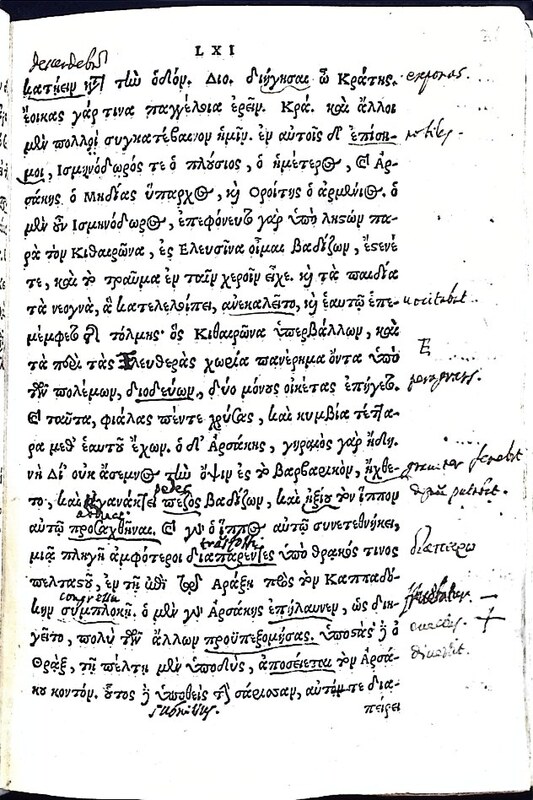 LXI
descendebat
κατῄειν τὴν τὼν ὁδόν. Διο. διήγησαι ὦ Κράτης.
ἔοικας γάρ τινα παγγέλοια ἐρεῖν. Κρά. καὶ ἄλλοι
μὲν πολλοὶ συγκατέβαινον ἡμῖν. ἐν αὐτοῖς δὲ ἐπίση-
μοι, Ισμηνόδωρός τε ὁ πλούσιος, ὁ ἡμέτερος, καὶ Αρ-
σάκης ὁ Μηδίας ὕπαρχος, καὶ Οροίτης ὁ ἀρμένιος. ὁ
μὲν οὖν Ισμηνόδωρος, ἐπεφόνευτο γὰρ ὑπὸ λῃστῶν πα-
ρὰ τὸν Κιθαιρῶνα, ἐς Ελευσῖνα οἶμαι βαδίζων, ἔστενέ
τε, καὶ τὸ τραῦμα ἐν ταῖν χεροῖν εἶχε. καὶ τὰ παιδία
τὰ νεογνὰ, ἃ κατελελοίπει, ἀνεκαλεῖτο, καὶ ἑαυτῷ ἐπε-
μέμφετο τῆς τόλμης· ὃς Κιθαιρῶνα ὑπερβάλλων, καὶ
τὰ περὶ τὰς Ἐλευθερὰς χωρία πανέρημα ὄντα ὑπὸ
τῶν πολέμων, διοδεύων, δύο μόνους οἰκέτας ἐπήγετο.
καὶ ταῦτα, φιάλας πέντε χρυσᾶς, καὶ κυμβία τέττα-
ρα μεθ' ἑαυτοῦ ἔχων. ὁ δ' Αρσάκης, γηραιὸς γὰρ ἤδη.
νὴ Δί' οὐκ ἄσεμνος τὴν ὄψιν ἐς τὸ βαρβαρικὸν, ἤχθε-
το, καὶ ἠγανάκτει πεζὸς βαδίζων, καὶ ἠξίου τὸν ἵππον
αὐτῷ προσαχθῆναι. καὶ γὰρ ὁ ἵππος αὐτῷ συνετεθνήκει,
μιᾷ πληγῇ ἀμφότεροι διαπαρέντες ὑπὸ θρακός τινος
πελταστοῦ, ἐν τῇ ἐπὶ τῷ Αράξῃ πρὸς τὸν Καππαδό-
κην συμπλοκῇ. ὁ μὲν γὰρ Αρσάκης ἐπήλαυνεν, ὡς διη-
γεῖτο, πολὺ τῶν ἄλλων προϋπεξορμήσας. ὑποστὰς δὲ ὁ
Θρᾲξ, τῇ πέλτῃ μὲν ὑποδὺς, ἀποσείεται τὸν Αρσά-
κου κοντόν. οὗτος δὲ ὑποθεὶς τὴν σάρισσαν, αὐτόν τε δια-
πείρει
notiles.
διαπείρω